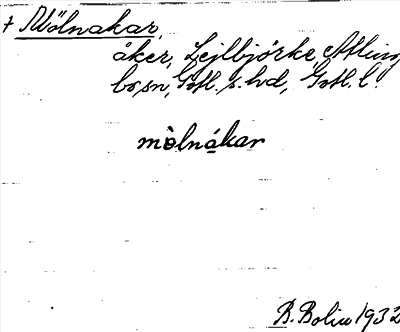 + Mölnakar,
åker, Lejlbjörke, Atling
bo, sn, Gotl. s. hd, Gotl. l.
mòlnákar
B. Bolin 1932